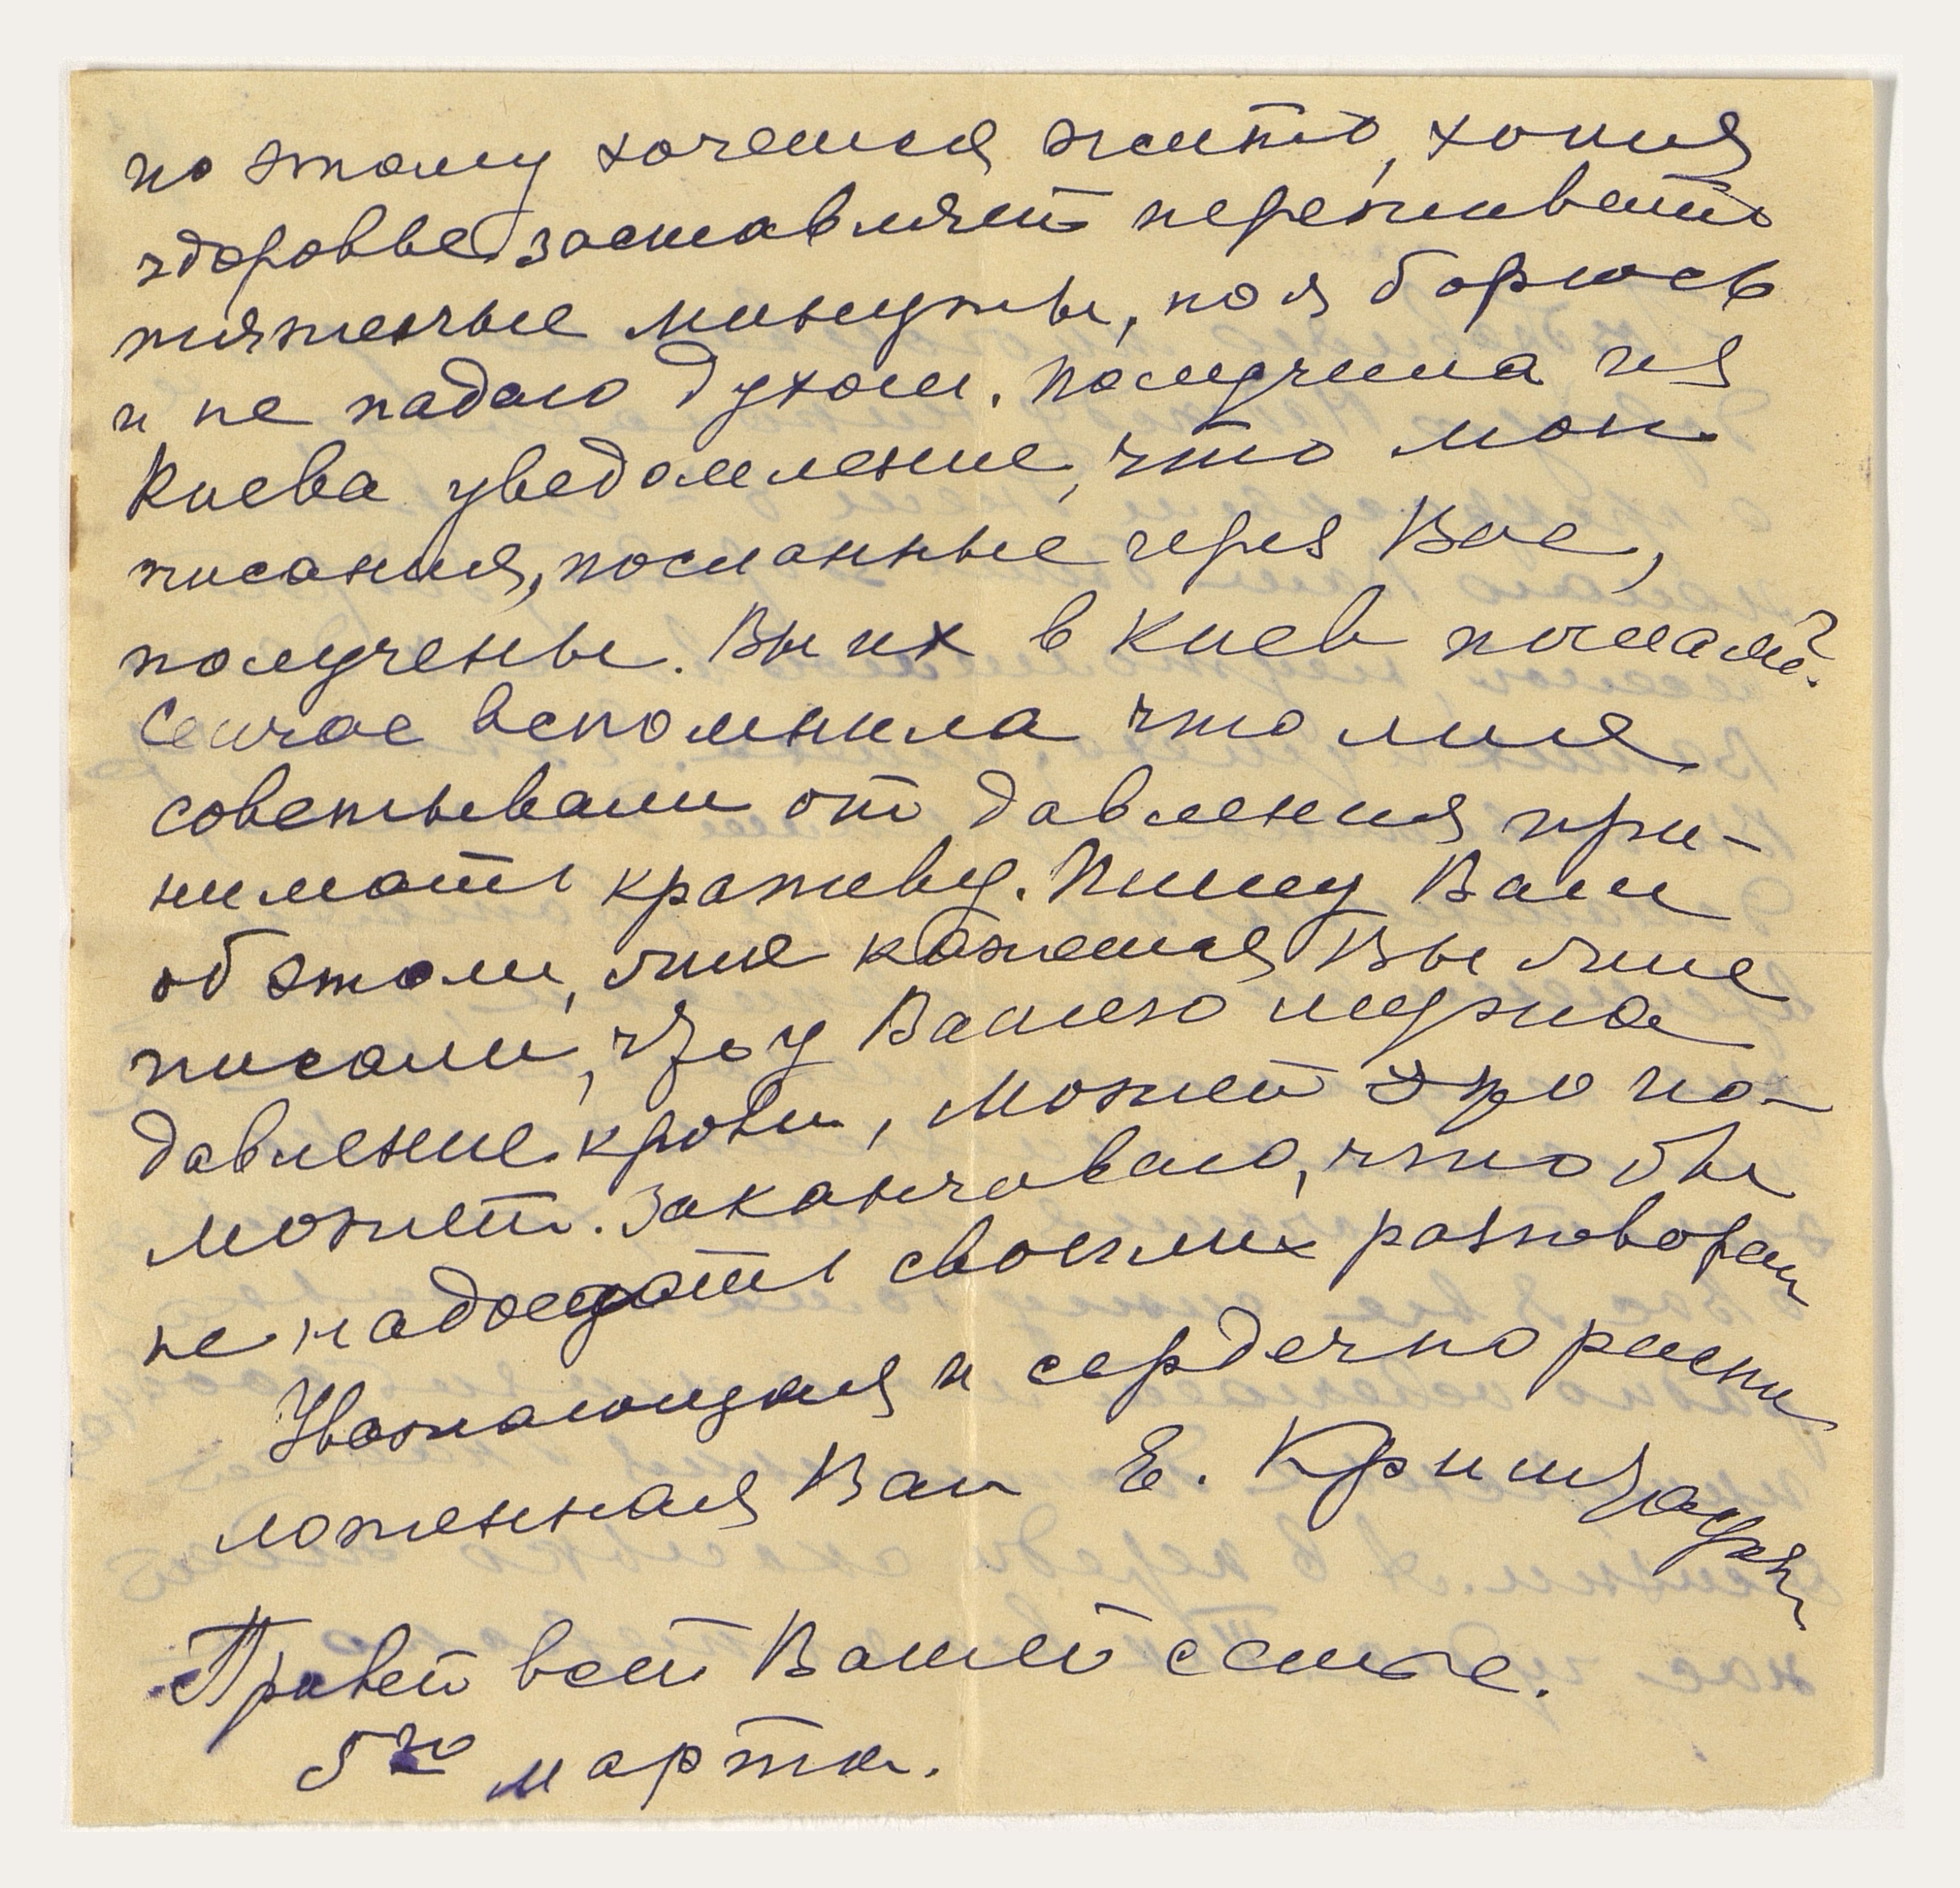 по этому хочется жить, хотя
здоровье заставляет переживать
тяжелые минуты, но я борюсь
и не падаю духом. Получила из
Киева уведомление, что мои
писания, посланные через Вас,
получены. Вы их в Киев послали?
Сейчас вспомнила что мне
советывали от давления при-
нимать крапиву. Пишу Вам
об этом, мне кажется Вы мне
писали, что у Вашего мужа
давление крови, может это по-
может. Заканчиваю, чтобы
не надоедать своими разговорами
Уважающая и сердечно распо
ложенная Вам Е.
Привет всей Вашей семье.
5го марта.